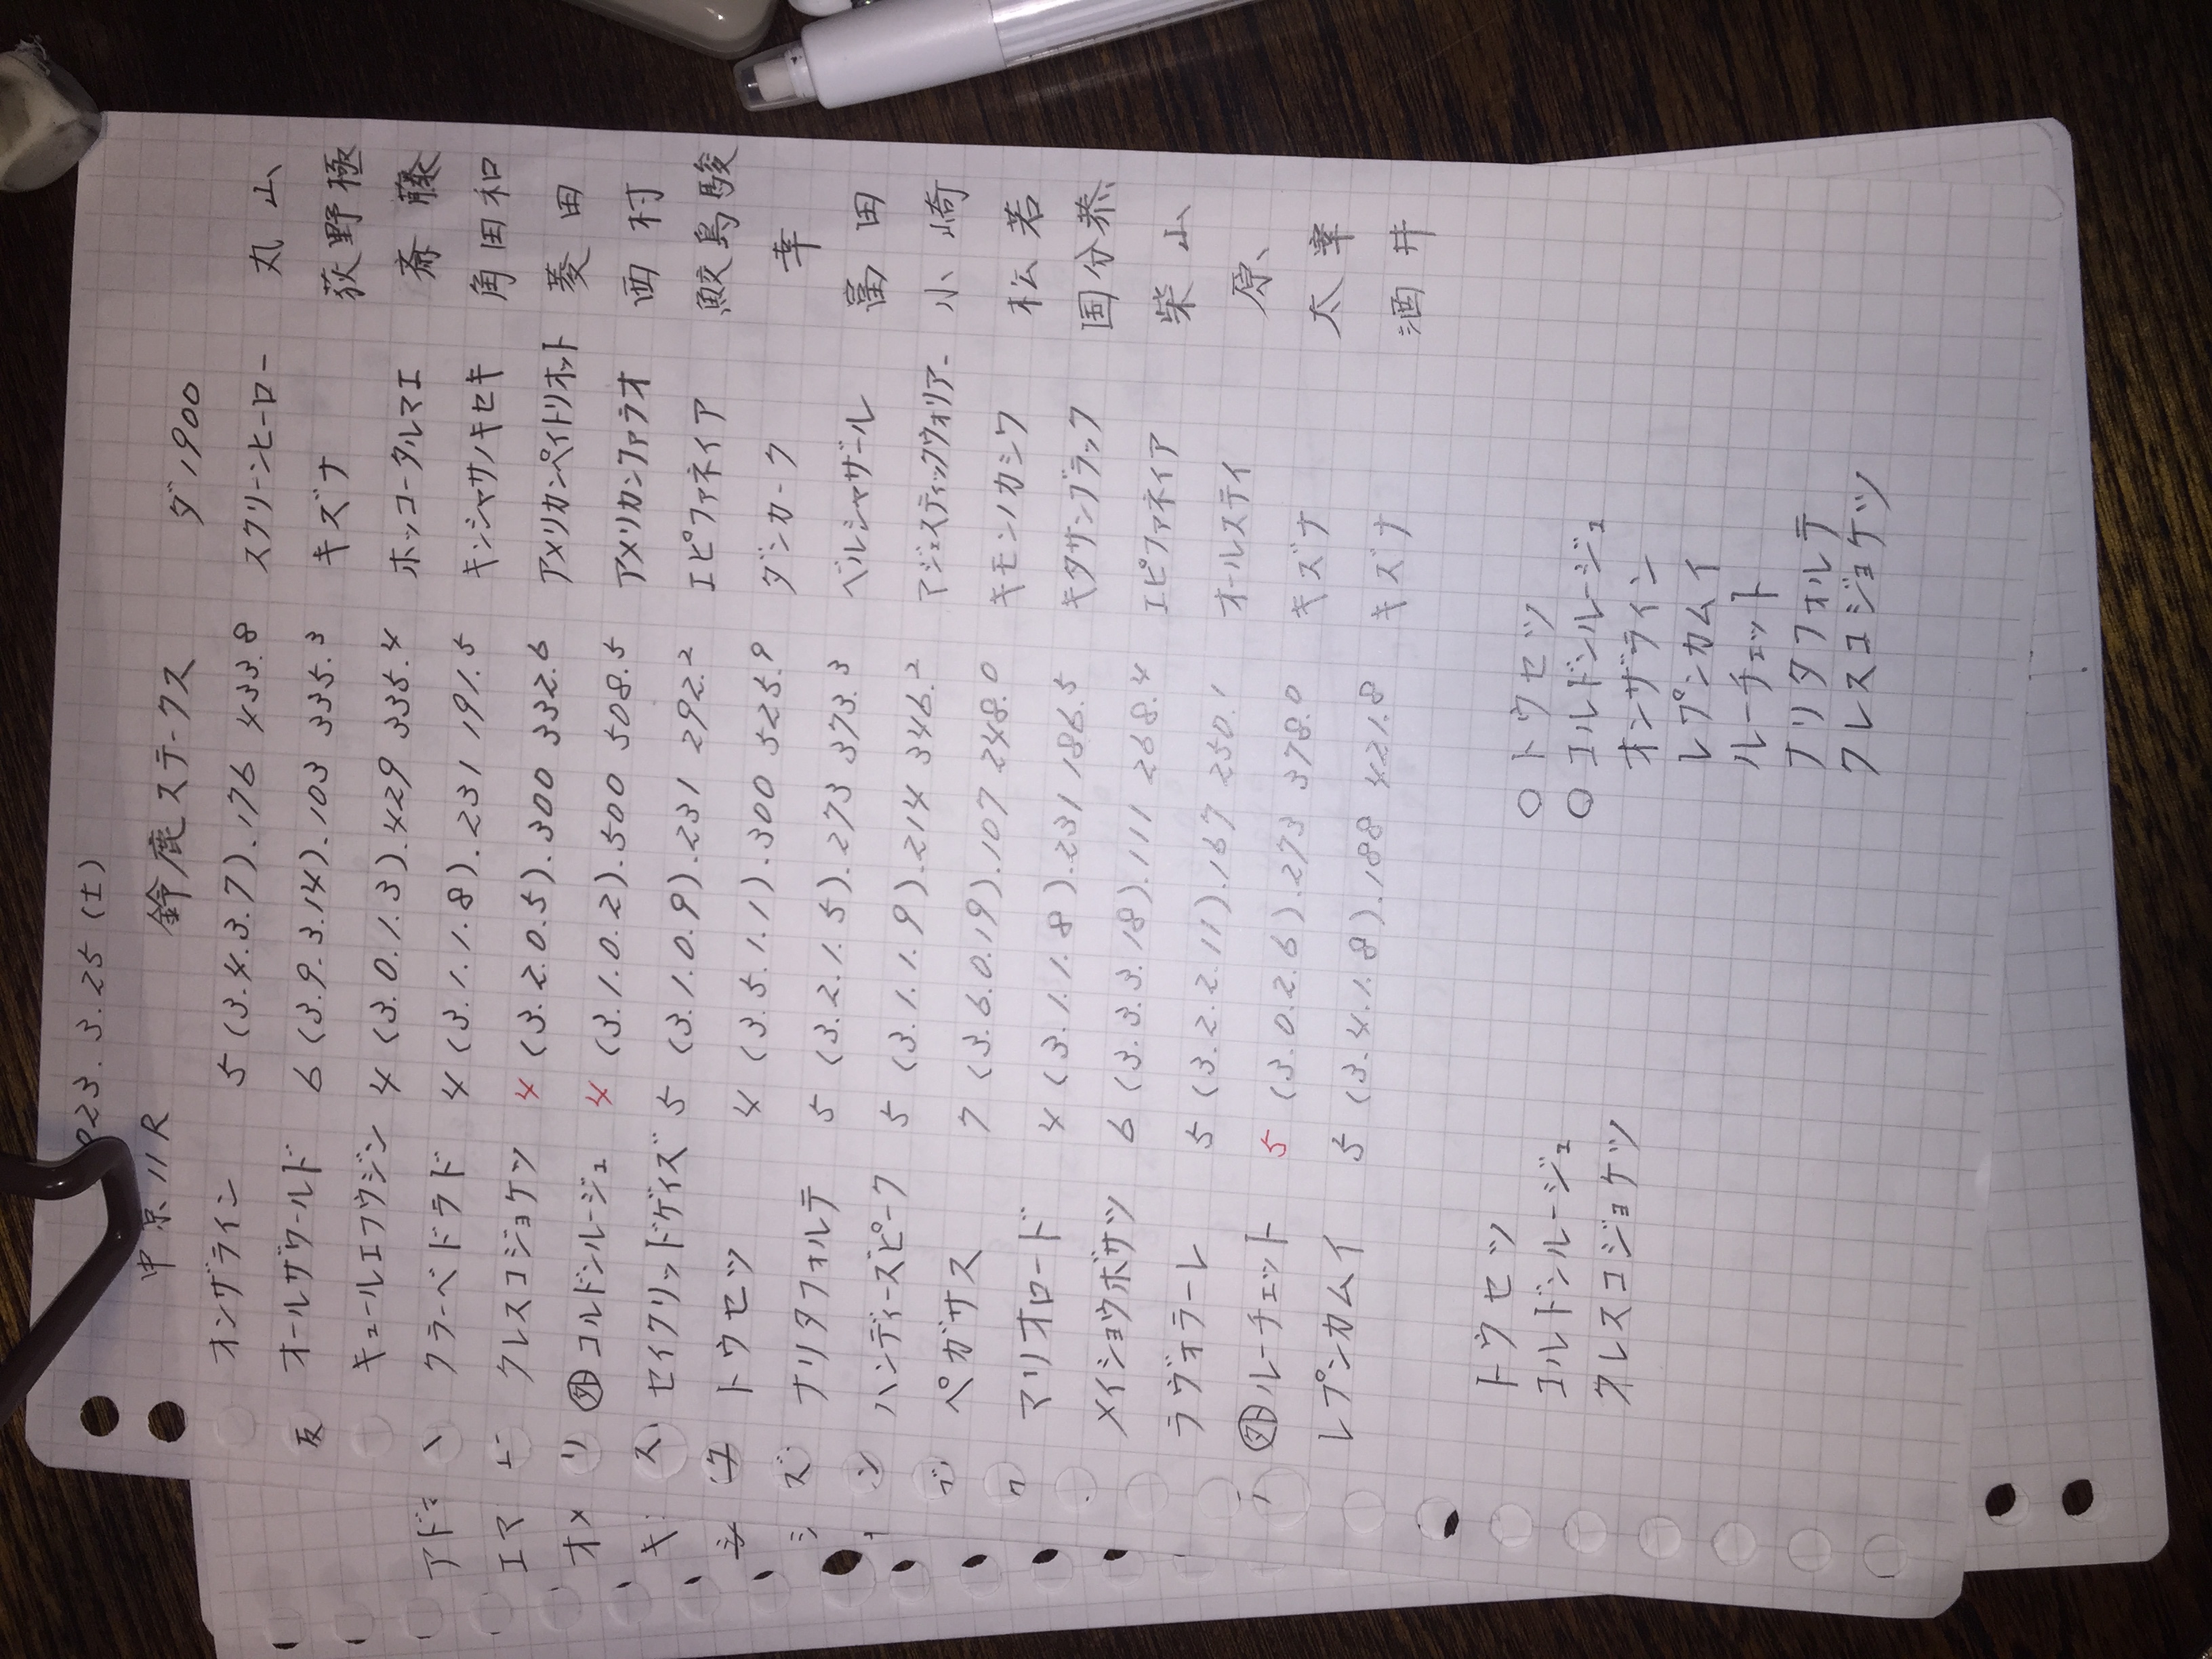 023.3.25(土)
中京11R 鈴鹿ステークス ダ1900
オンザライン 5 (3.4.3.7).176 433.8 スクリーンヒーロー 丸山
オールザワールド 6 (3.9.3.14).103 335.3 キズナ 荻野極
キュールエフウジン 4 (3.0.1.3).429 335.4 ホッコータルマエ 斎藤
クラーベドラド 4 (3.1.1.8).231 191.5 キンシャサノキセキ 角田和
クレスコジョケツ 4 (3.2.0.5).300 332.6 アメリカンペイトリオット 菱田
外 コルドンルージュ 4 (3.1.0.2).500 508.5 アメリカンファラオ 西村
セイクリッドゲイズ 5 (3.1.0.9).231 292.2 エピファネイア 鮫島駿
トウセツ 4 (3.5.1.1).300 525.9 ダンカーク 幸
ナリタフォルテ 5 (3.2.1.5).273 373.3 ベルシャザール 富田
ハンディーズピーク 5 (3.1.1.9).214 346.2 マジェスティックウォリアー 小崎
ペガサス 7 (3.6.0.19).107 248.0 キモンノカシワ 松若
マリオロード 4 (3.1.1.8).231 186.5 キタサンブラック 国分恭
メイショウボサツ 6 (3.3.3.18).111 268.4 エピファネイア 柴山
ラヴォラーレ 5 (3.2.2.11).167 250.1 オールステイ 原
外 ルーチェット 5 (3.0.2.6).273 378.0 キズナ 太宰
レプンカムイ 5 (3.4.1.8).188 421.8 キズナ 酒井
トウセツ ○トウセツ
コルドンルージュ ○コルドンルージュ
クレスコジョケツ オンザライン
レプンカムイ
ルーチェット
ナリタフォルテ
クレスコジョケツ
友
アド
エマ
オメ リ
キ ス
ジ ズ